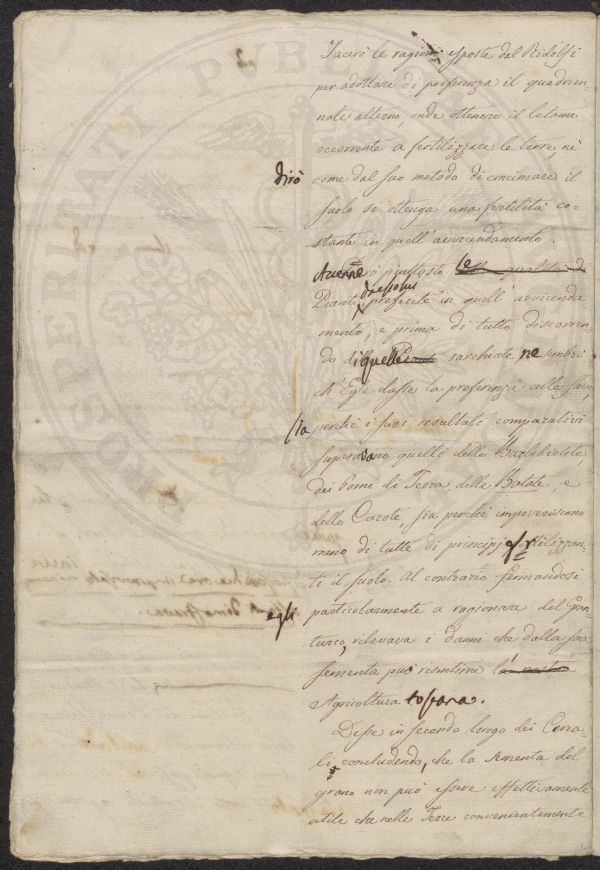 Tacerò le ragioni esposte dal Ridolfi
per adottare di preferenza il quadrien
nale alterno, onde ottenere il letame
occorrente a fertilizzare le terre, nè
dirò come dal suo metodo di concimare il
suolo si ottenga una fertilità co-
stante in quell'avvicendamento.
Accennerò piuttosto le
Piante preferite in quell'avvicenda
mento, e prima di tutto discorren
do di quelle sarchiate ne sembrò
ch'Egli dasse la preferenza alle fave,
sia perchè i suoi resultati comparativi
superavano quelli delle Barbebietole,
dei Pomi di Terra, delle Batate, e
delle Carote, sia perchè impoveriscono
meno di tutte di principj fertilizzan-
ti il suolo. Al contrario fermandosi
egli particolarmente a ragionare del Gran-
turco, rilevava i danni che dalla sua
sementa può risentirne l'
Agricoltura toscana.
Disse in secondo luogo dei Cerea-
li, concludendo, che la sementa del
grano non può essere effettivamente
utile che nelle Terre convenientemente
PVB